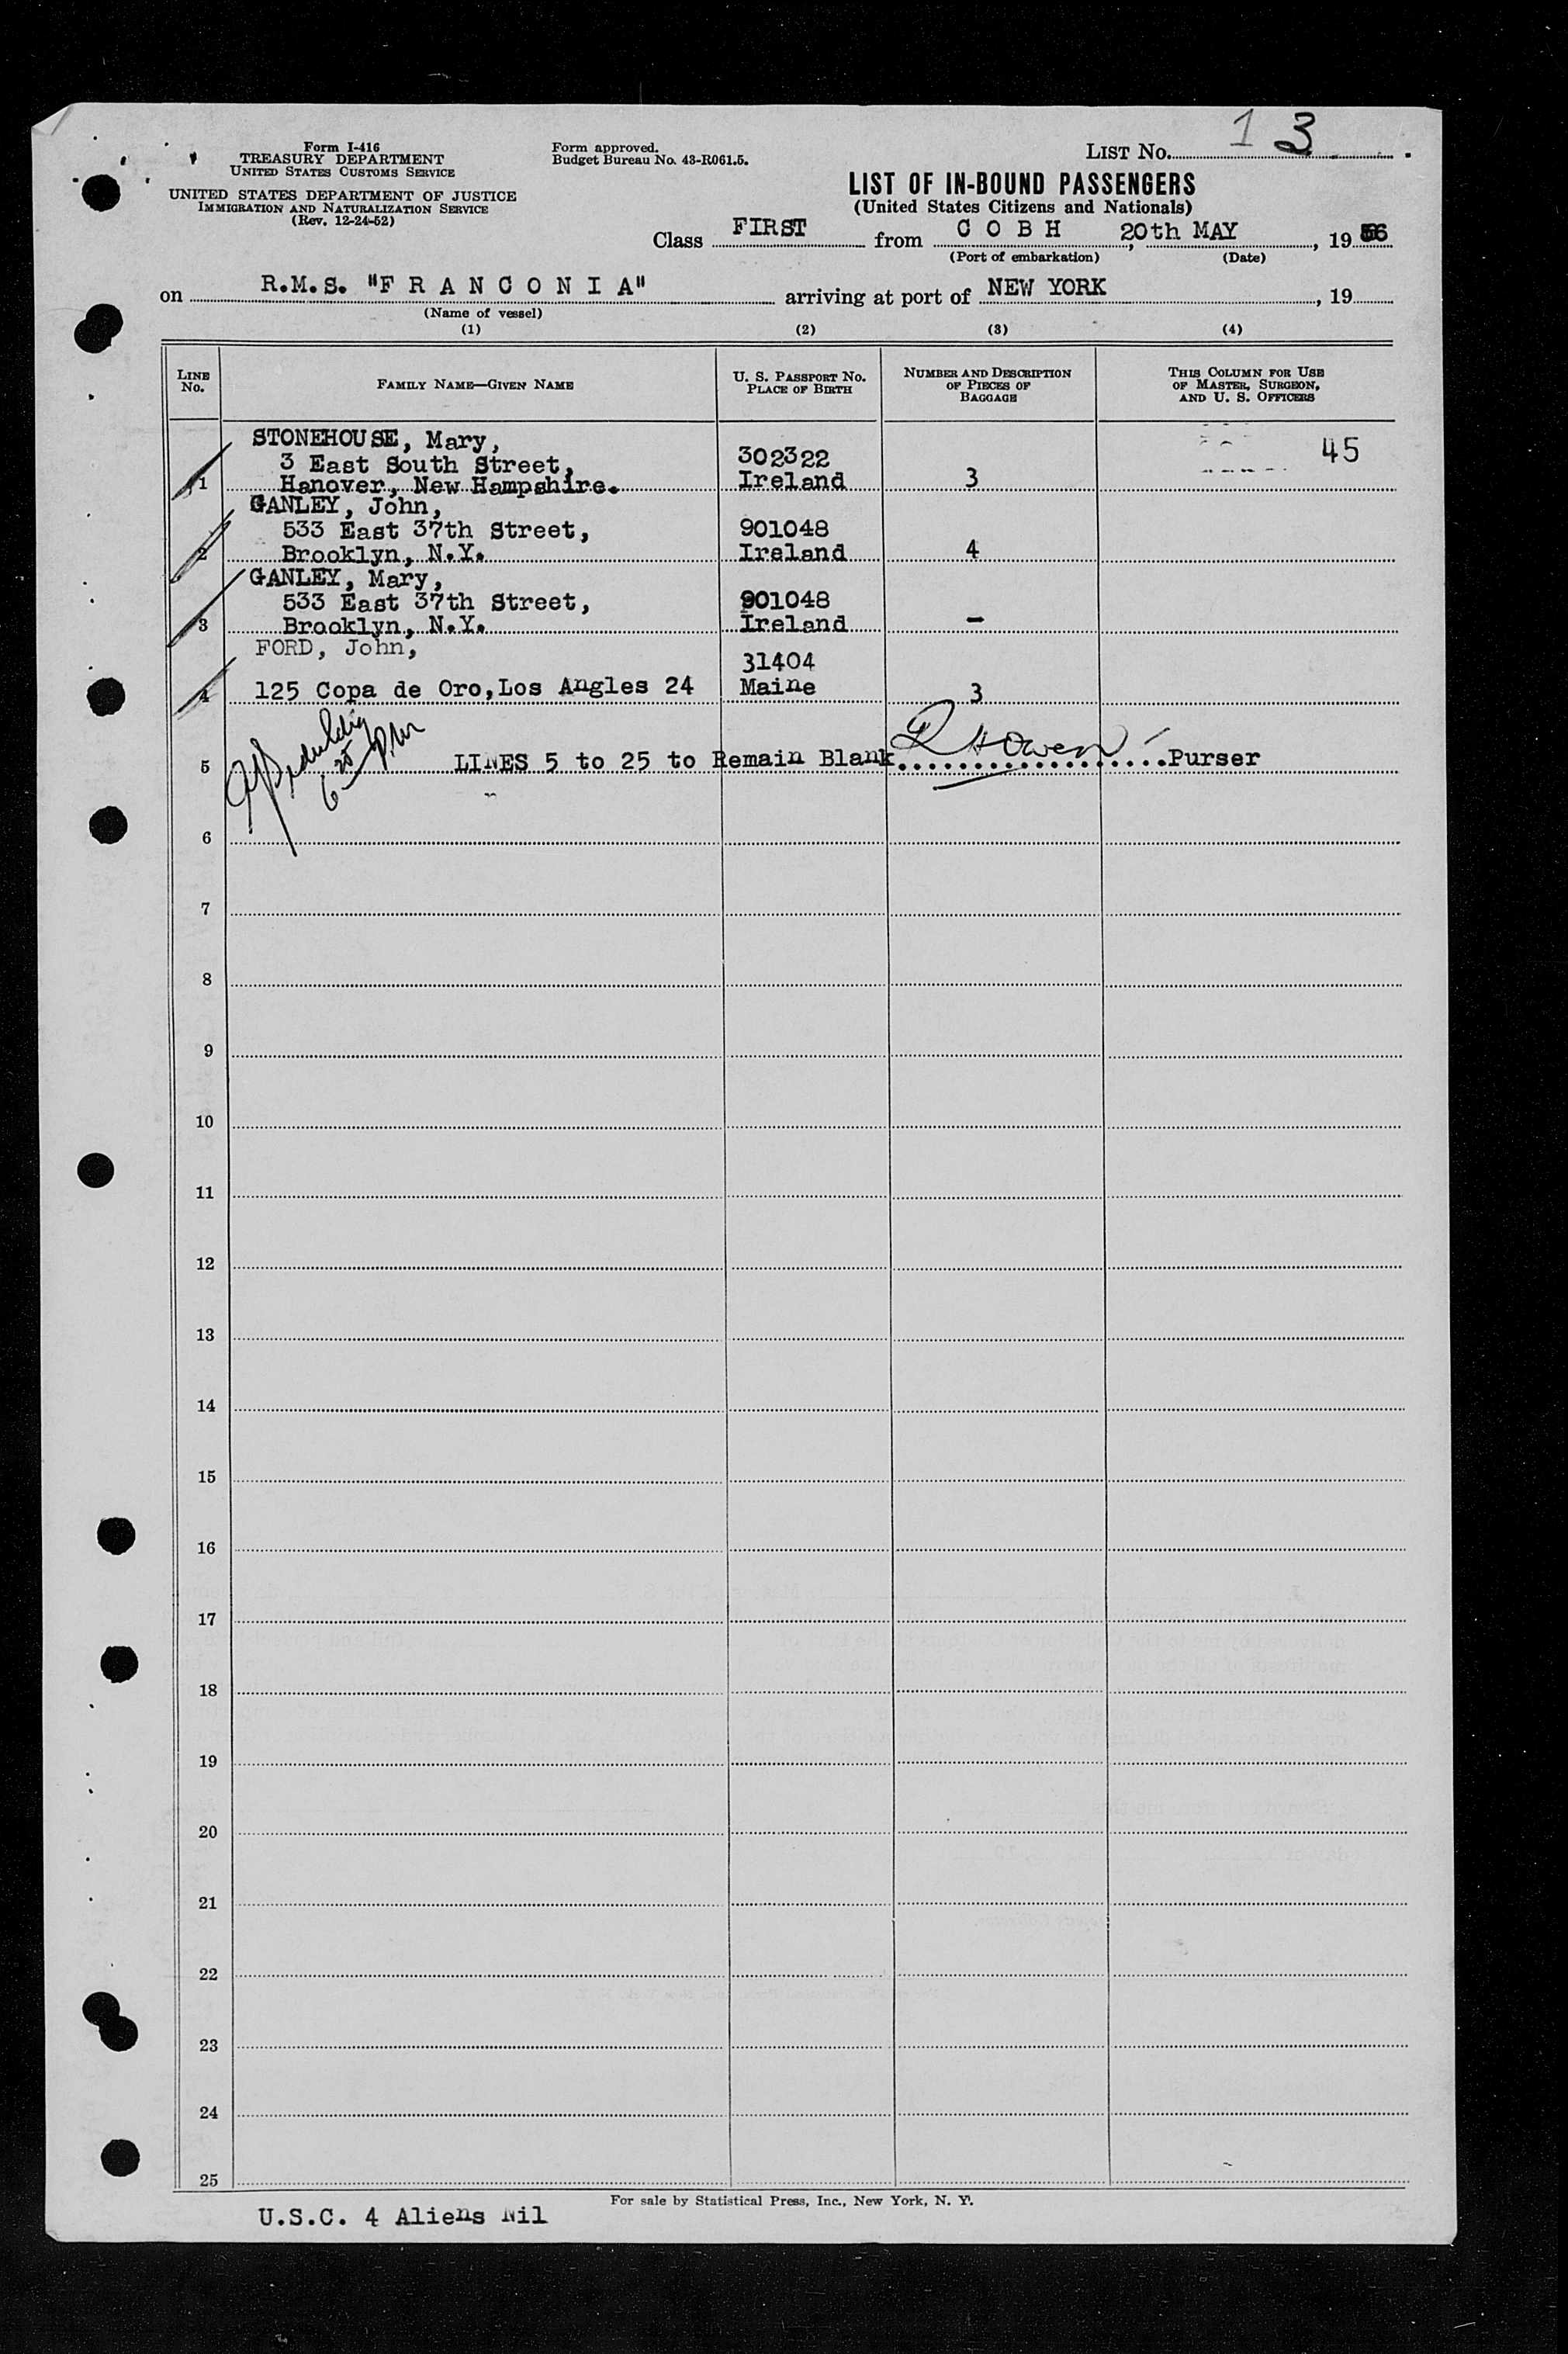 Form I-416
TREASURY DEPARTMENT
UNITED STATES CUSTOMS SERVICE
UNITED STATES DEPARTMENT OF JUSTICE
IMMIGRATION AND NATURALIZATION SERVICE
(Rev. 12-24-52)
Form approved.
Budget Bureau No. 43-R061.5.
LIST NO. 1 3
LIST OF IN-BOUND PASSENGERS
(United States Citizens and Nationals)
Class FIRST from C O B H, 20th MAY, 19 56
(Port of embarkation) (Date)
on R.M.S. "F R A N C O N I A" arriving at port of NEW YORK, 19
(Name of vessel)
(1) (2) (3) (4)
LINE NO.
FAMILY NAME—GIVEN NAME
U. S. PASSPORT NO.
PLACE OF BIRTH
NUMBER AND DESCRIPTION
OF PIECES OF
BAGGAGE
THIS COLUMN FOR USE
OF MASTER, SURGEON,
AND U. S. OFFICERS
STONEHOUSE, Mary, 45
3 East South Street, 302322
1 Hanover, New Hampshire. Ireland 3
GANLEY, John,
533 East 37th Street, 901048
2 Brooklyn, N.Y. Ireland 4
GANLEY, Mary,
533 East 37th Street, 901048
3 Brooklyn, N.Y. Ireland -
FORD, John, 31404
4 125 Copa de Oro, Los Angles 24 Maine 3
6 20 PM
5 LINES 5 to 25 to Remain Blank Owen Purser
6
7
8
9
10
11
12
13
14
15
16
17
18
19
20
21
22
23
24
25
For sale by Statistical Press, Inc., New York, N. Y.
U.S.C. 4 Aliens Nil